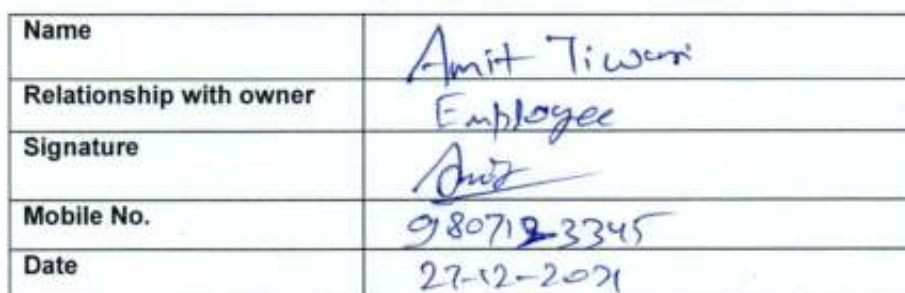 Name Amit Tiwari
Relationship with owner Employee
Signature Amit
Mobile No. 9807123345
Date 27-12-2021